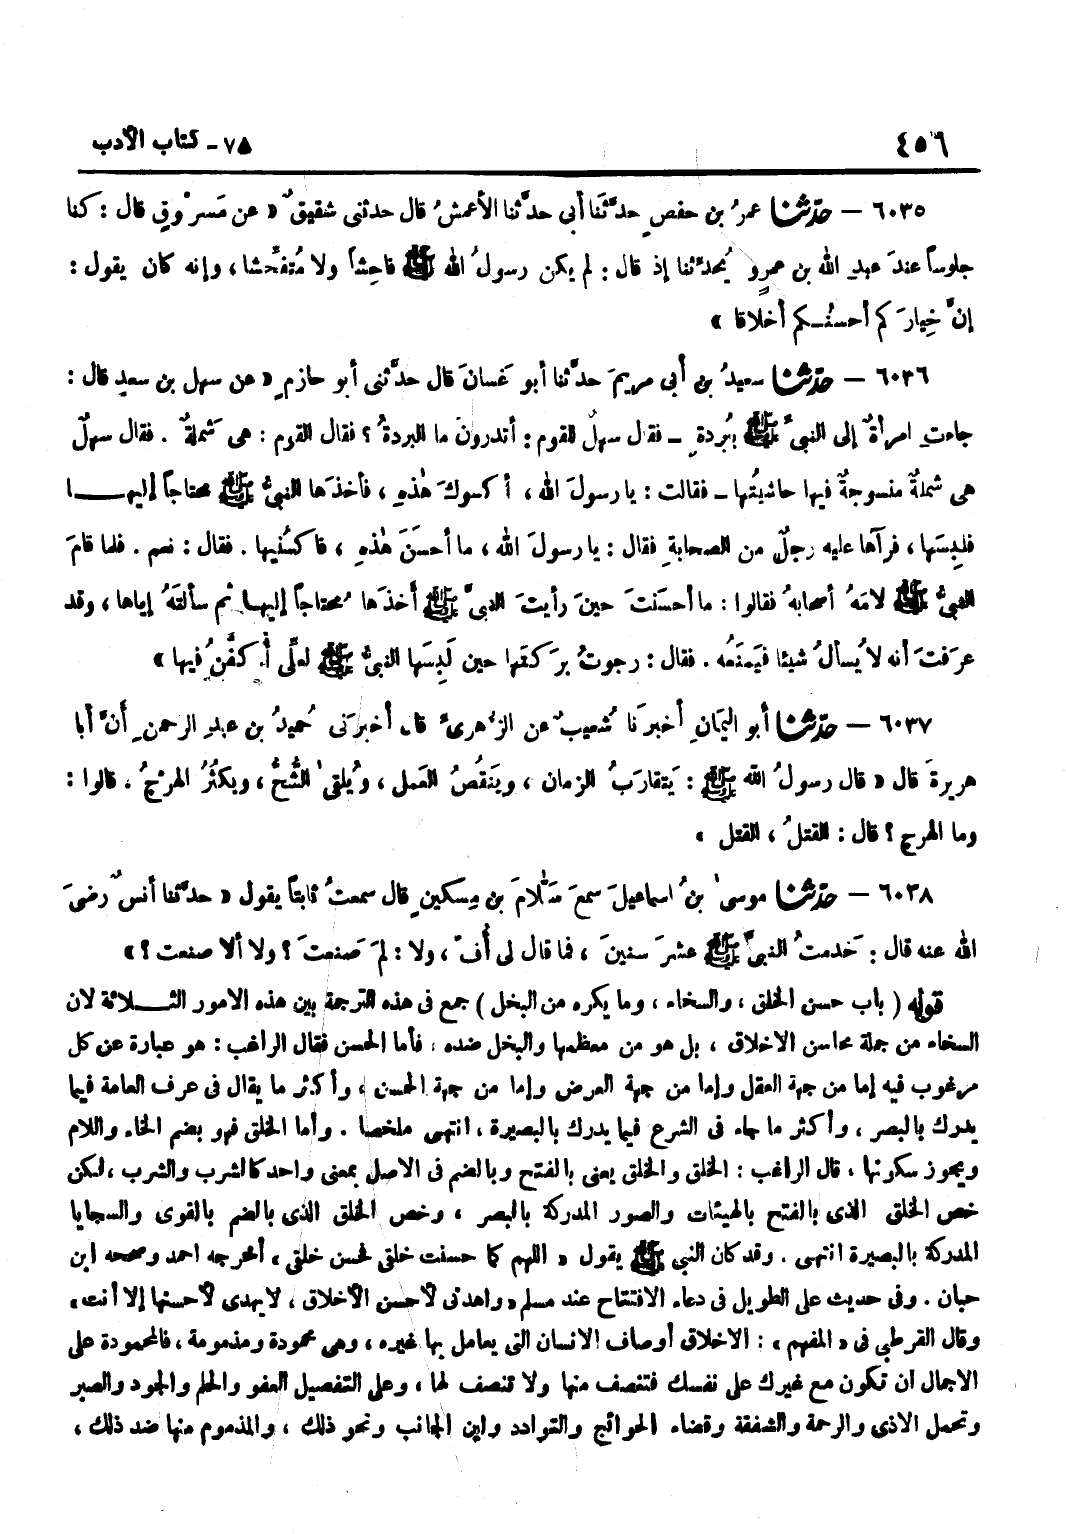 ٤٥٦ ٧٨ - كتاب الأدب
٦٠٣٥ — حدّثنا عمرُ بن حفصٍ حدَّثنَا أبى حدَّثنا الأعمشُ قال حدثنى شقيقٌ « عن مَسروقٍ قال : كنا
جلوساً عندَ عبدِ الله بن عمرٍو يُحدِّثنا إذ قال : لم يكن رسولُ الله ﷺ فاحِشاً ولا مُتفحِّشا ، وإنه كان يقول :
إنَّ خِيارَكم أحسنُـكم أخلاقا »
٦٠٣٦ — حدّثنا سعيدُ بن أبي مريمَ حدَّثنا أبو غسانَ قال حدَّثنى أبو حازمٍ « عن سهل بن سعدٍ قال :
جاءتِ امرأةٌ إلى النبىِّ ﷺ ببُردةٍ ــ فقال سهلٌ للقوم : أتدرونَ ما البردةُ ؟ فقال القوم : هى شَملةٌ . فقال سهلٌ
هى شملةٌ منسوجةٌ فيها حاشيتُها ــ فقالت : يا رسولَ الله ، أكسوكَ هٰذهِ ، فأخذَها النبىُّ ﷺ محتاجاً إليهــا
فلبِسَها ، فرآها عليه رجلٌ من الصحابةِ فقال : يا رسولَ الله ، ما أحسنَ هٰذهِ ، فاكسُنيها . فقال : نعم . فلما قامَ
النبىُّ ﷺ لامَهُ أصحابهُ فقالوا : ما أحسَنتَ حينَ رأيتَ النبىَّ ﷺ أخذَها مُحتاجاً إليهـا ثم سألتَهُ إياها ، وقد
عرَفتَ أنه لا يُسألُ شيئا فيَمنَعُه . فقال : رجوتُ برَكتَها حين لَبِسَها النبىُّ ﷺ لعلِّى أُكفَّنُ فيها »
٦٠٣٧ — حدّثنا أبو اليمانِ أخبرَنا شُعيبٌ عن الزُّهرىِّ قال أخبرَنى حُميدُ بن عبدِ الرحمنِ أنَّ أبا
هريرةَ قال « قال رسولُ الله ﷺ : يَتقارَبُ الزمان ، وينقُصُ العَمل ، ويُلقىٰ الشُّحُّ ، ويكثُرُ الهرْجُ . قالوا :
وما الهرج ؟ قال : القتلُ ، القتل »
٦٠٣٨ — حدّثنا موسىٰ بنُ اسماعيلَ سمعَ سَلّامَ بن مِسكينٍ قال سمعتُ ثابتاً يقول « حدَّثنا أنسٌ رضىَ
الله عنه قال : خَدمتُ النبىَّ ﷺ عشرَ سنينَ ، فما قال لى أُفّ ، ولا : لمَ صَنعتَ ؟ ولا ألا صنعت ؟ »
قوله ( باب حسن الخلق ، والسخاء ، وما يكره من البخل ) جمع فى هذه الترجمة بين هذه الامور الثــلاثة لان
السخاء من جملة محاسن الاخلاق ، بل هو من معظمها والبخل ضده . فأما الحسن فقال الراغب : هو عبارة عن كل
مرغوب فيه إما من جهة العقل وإما من جهة العرض وإما من جهة الحسن ، وأكثر ما يقال فى عرف العامة فيما
يدرك بالبصر ، وأكثر ما جاء فى الشرع فيما يدرك بالبصيرة ، انتهى ملخصا . وأما الخلق فهو بضم الخاء واللام
ويجوز سكونها ، قال الراغب : الخلق والخلق يعنى بالفتح وبالضم فى الاصل بمعنى واحد كالشرب والشرب ، لكن
خص الخلق الذى بالفتح بالهيئات والصور المدركة بالبصر ، وخص الخلق الذى بالضم بالقوى والسجايا
المدركة بالبصيرة انتهى . وقد كان النبي ﷺ يقول « اللهم كما حسنت خلقى فحسن خلقى ، أخرجه احمد وصححه ابن
حبان . وفى حديث على الطويل فى دعاء الافتتاح عند مسلم « واهدنى لأحسن الأخلاق ، لا يهدى لأحسنها إلا أنت ،
وقال القرطبي فى « المفهم ، : الاخلاق أوصاف الانسان التى يعامل بها غيره ، وهى محمودة ومذمومة ، فالمحمودة على
الاجمال أن تكون مع غيرك على نفسك فتنصف منها ولا تنصف لها ، وعلى التفصيل العفو والحلم والجود والصبر
وتحمل الاذى والرحمة والشفقة وقضاء الحوائج والتوادد ولين الجانب ونحو ذلك ، والمذموم منها ضد ذلك ،